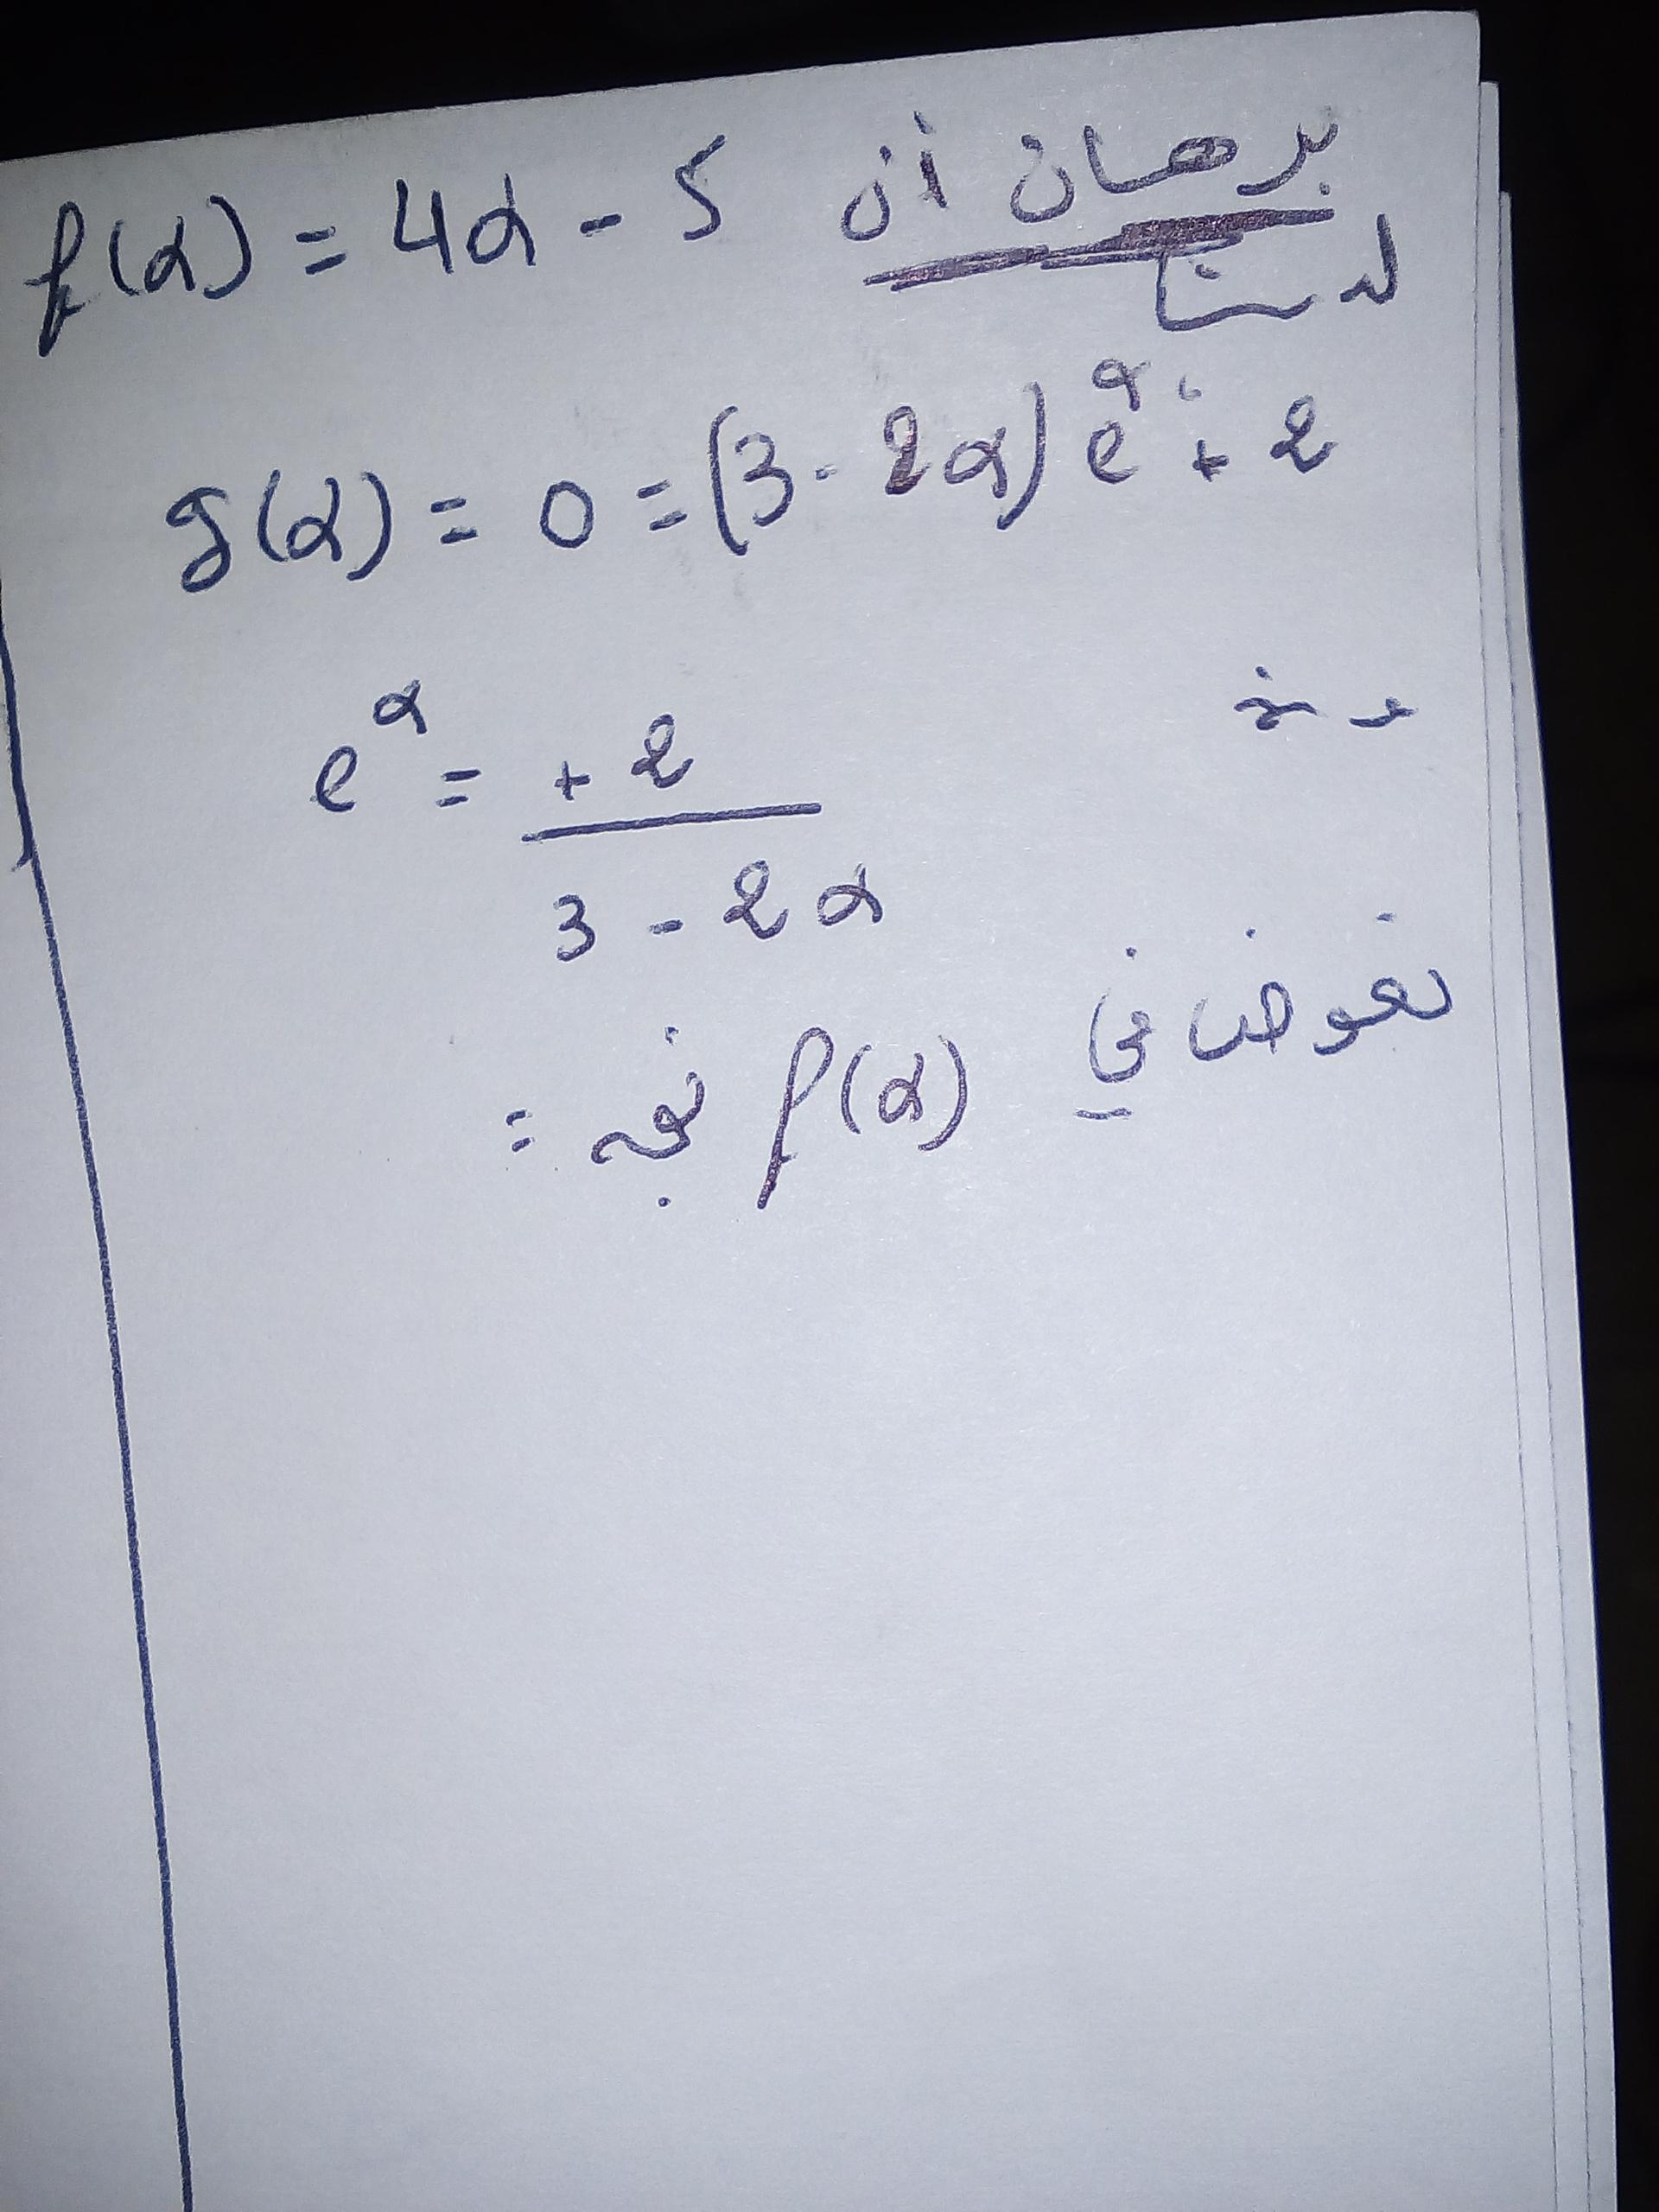 برهان أن f(α) = 4α - 5
لدينا
g(α) = 0 = (3 - 2α) e^α + 2
ومنه
e^α = +2 / (3 - 2α)
نعوض في f(α) نجد :